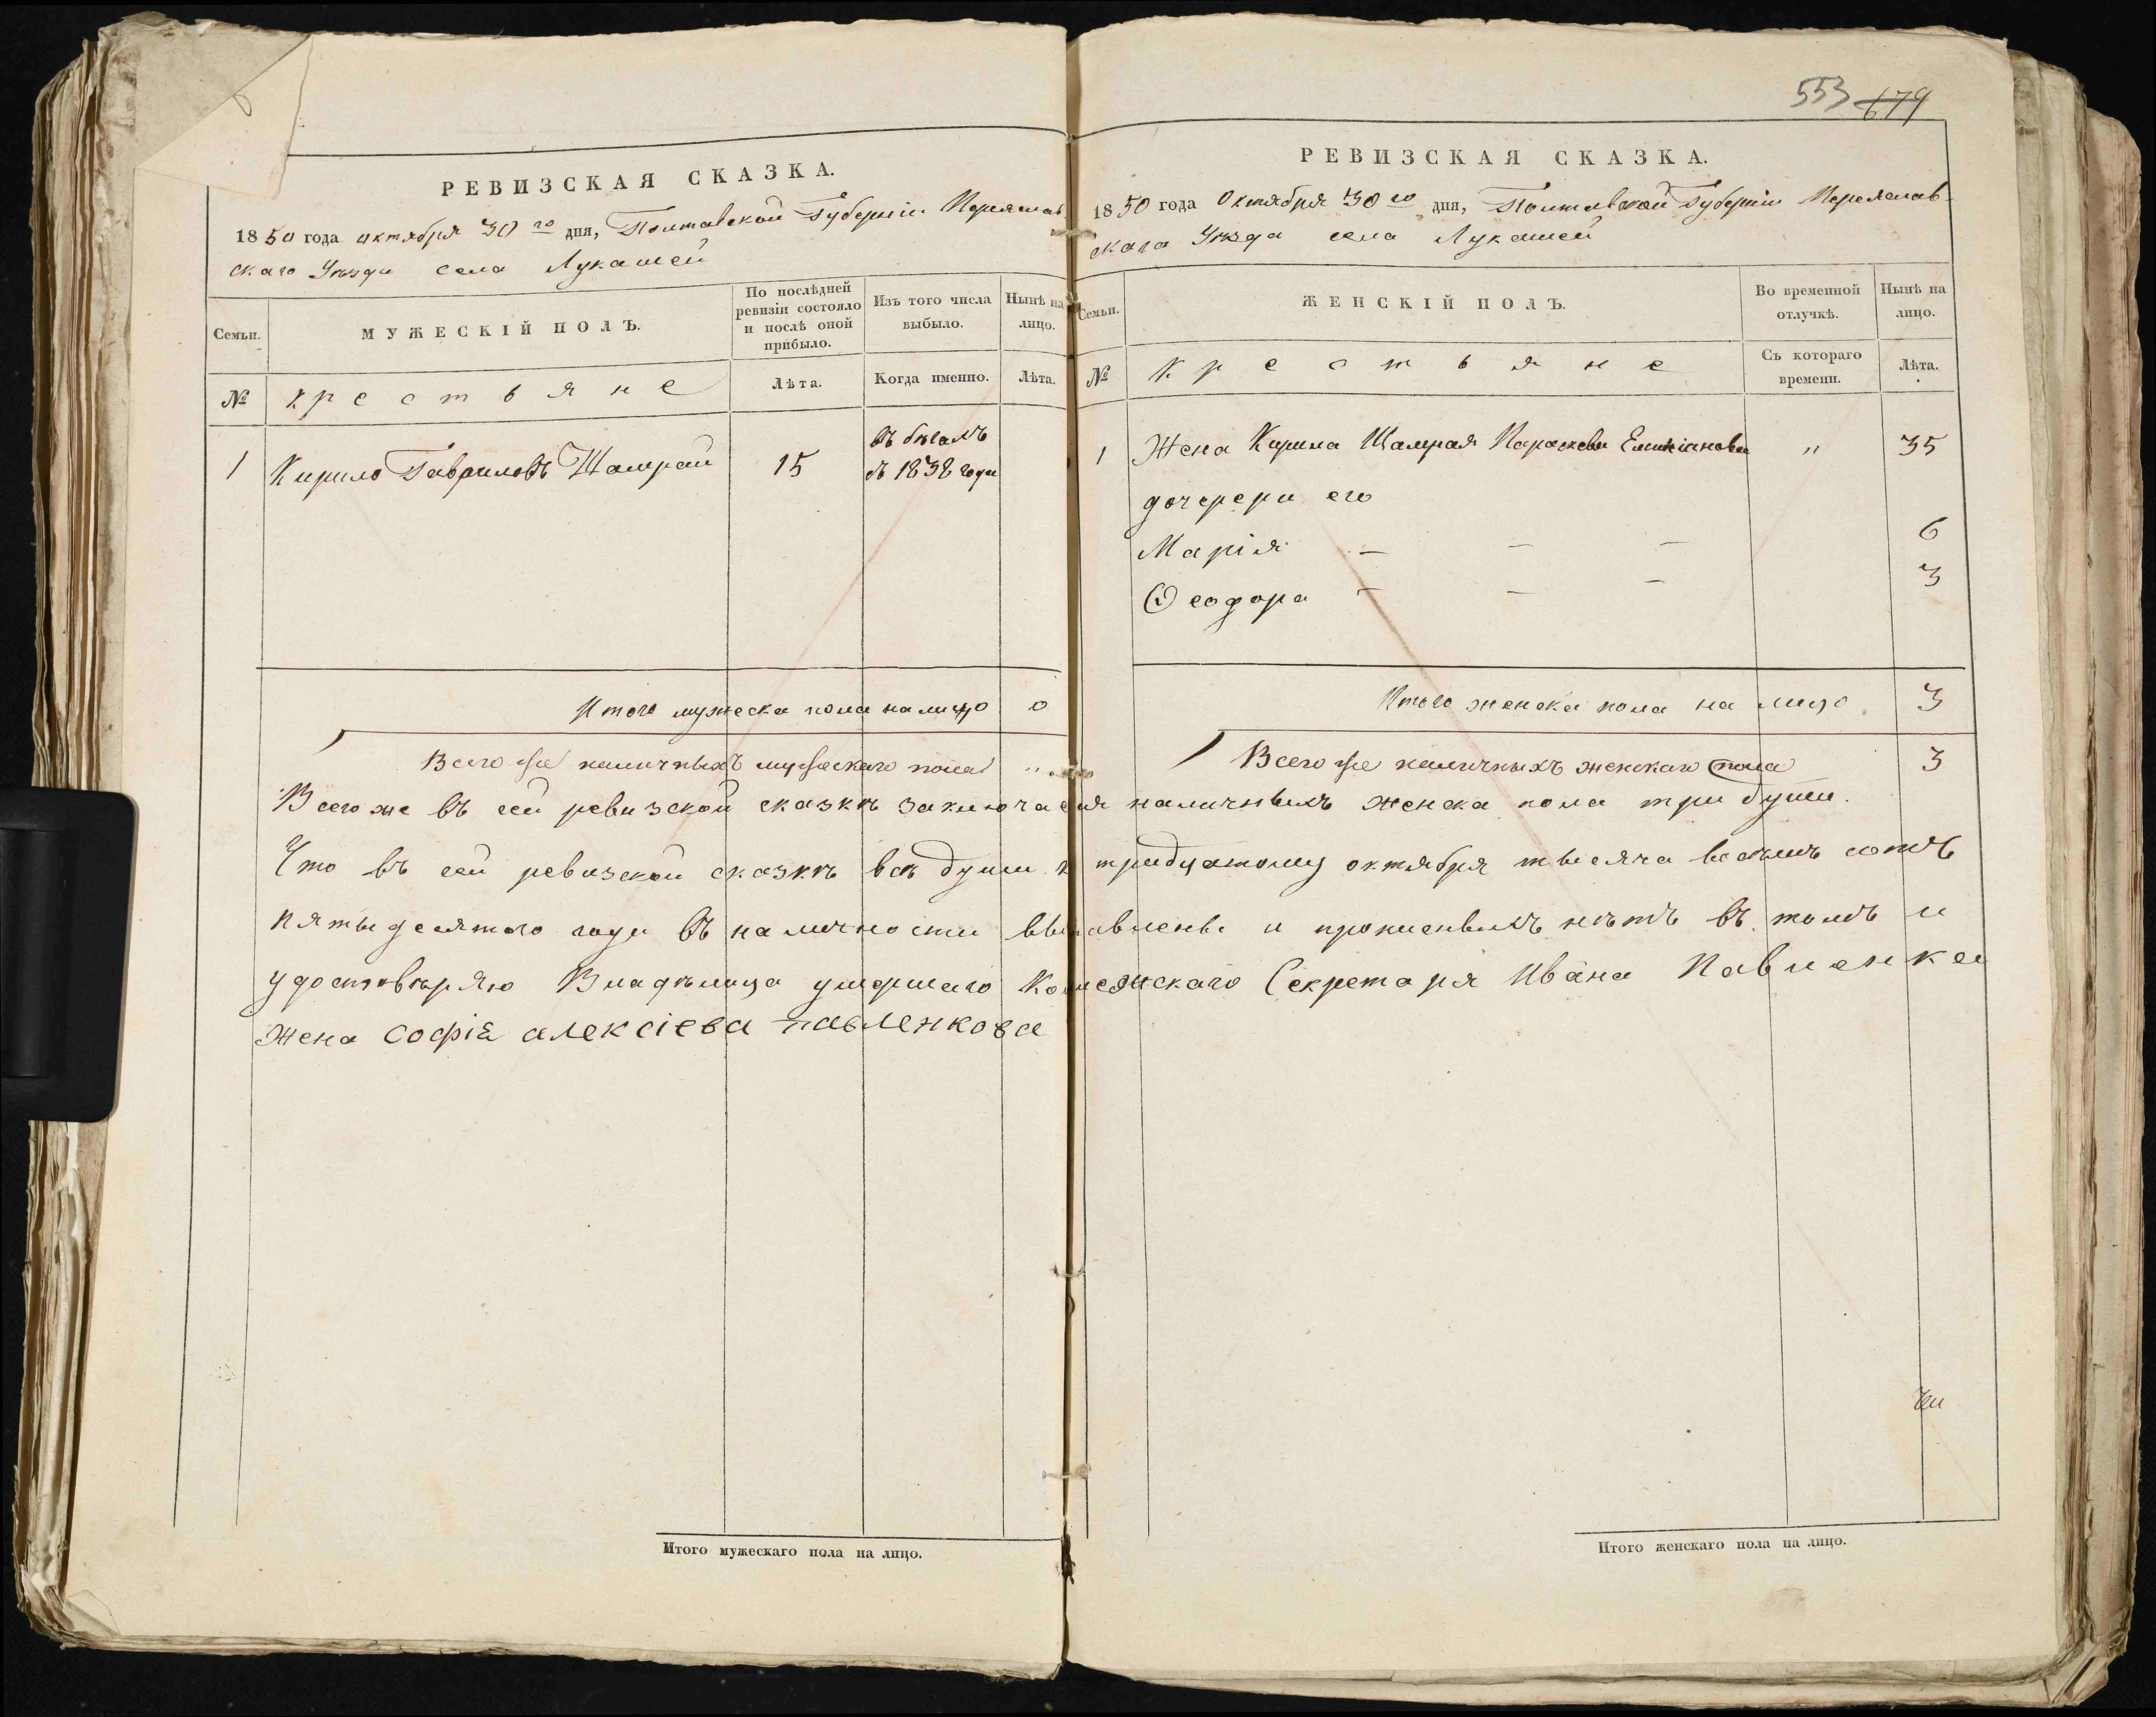 553 679
РЕВИЗСКАЯ СКАЗКА.
1850 года октября 30го дня, Полтавской Губерніи Переяслав-
скаго Уѣзда села Лукашей
Семьи.
МУЖЕСКІЙ ПОЛЪ.
По послѣдней
ревизіи состояло
и послѣ оной
прибыло.
Изъ того числа
выбыло.
Нынѣ на
лицо.
№
крестьяне
Лѣта.
Когда именно.
Лѣта.
1 Кирило Гавриловъ Шамрай 15
въ бѣгахъ
съ 1838 года
Итого мужеска пола налицо 0
Всего же наличныхъ мужескаго пола "
РЕВИЗСКАЯ СКАЗКА.
1850 года Октября 30го дня, Полтавской Губерніи Переяслав-
скаго Уѣзда села Лукашей
Семьи.
ЖЕНСКІЙ ПОЛЪ.
Во временной
отлучкѣ.
Нынѣ на
лицо.
№
Крестьяне
Съ котораго
времени.
Лѣта.
1 Жена Кирила Шамрая Параскева Емиліанова " 35
дочерери его
Марія — — — 6
Ѳеодора — — — 3
Итого женска пола на лицо 3
Всего же наличныхъ женскаго пола 3
Всего же въ сей ревизской сказкѣ заключаетя наличныхъ женска пола три души.
Что въ сей ревизской сказкѣ всѣ души к тридцатому октября тысяча восемъ сотъ
пятьдесятого года въ наличности выявлены и прописныхъ нѣтъ въ томъ и
удостовѣряю Владѣлица умершаго Колежскаго Секретаря Ивана Павленка
Жена софія алексіева павленкова
Итого мужескаго пола на лицо.
Итого женскаго пола на лицо.